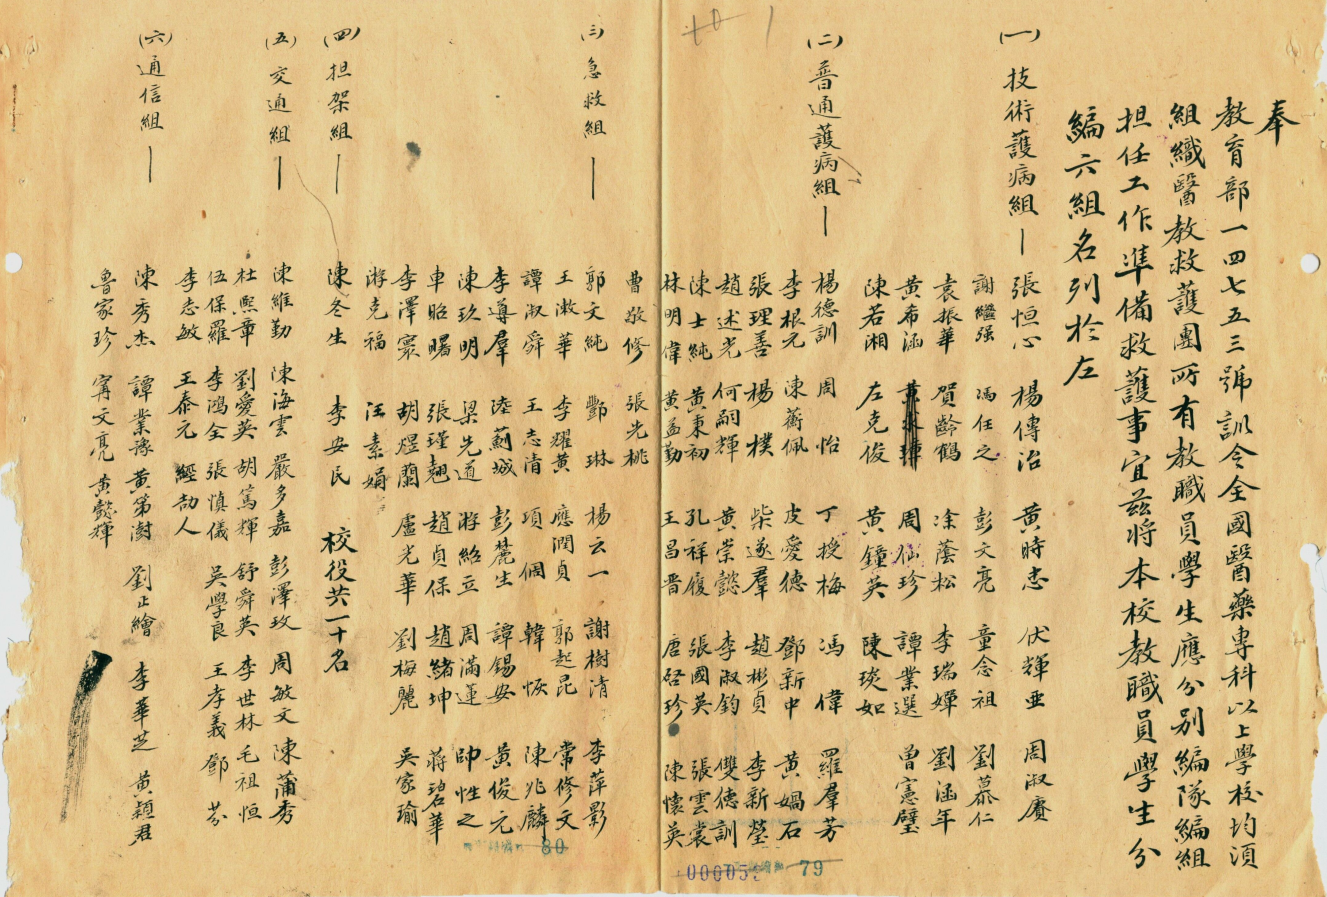 奉
教育部一四七五三號訓令全國醫藥專科以上學校均須
組織醫教救護團所有教職員學生應分別編隊編組
担任工作準備救護事宜茲將本校教職員學生分
編六組名列於左
(一)技術護病組— 張恒心 楊傳治 黃時忠 伏輝亜 周淑賡
謝繼强 馮任之 彭文亮 童念祖 劉慕仁
袁振華 賀齡鶴 凃蔭松 李瑞嬋 劉涵年
黃布涵 周珍 譚業選 曾憲璧
陳若湘 左克俊 黃鐘英 陳琰如
(二)普通護病組— 楊德訓 周怡 丁授梅 馮偉 羅羣芳
李根元 陳蘅佩 皮愛德 鄧新中 黃媧石
張理善 楊樸 柴遂羣 趙彬貞 李新瑩
趙述光 何嗣輝 黃崇懿 李淑鈞 雙德訓
陳士純 黃東初 孔祥復 張國英 張雲裳
林明偉 黃益勤 王昌晋 唐啓珍 陳懷英
曹敬修 張光桃
(三)急救組— 郭文純 酆琳 楊云一 謝樹清 李萍影
王漱華 李耀黃 應潤貞 郭起昆 常修文
譚淑舜 王志清 項侗 韓恢 陳兆麟
李尊羣 陸薊城 彭麓生 譚錫安 黃俊元
陳玖明 梁先道 游紹亘 周滿蓮 帥性之
車昭曙 張瑾翹 趙貞保 趙緒坤 蔣碧華
李澤寰 胡煜蘭 盧光華 劉梅麗 吳家瑜
游克福 汪素娟
(四)担架組— 陳冬生 李安民 校役共一十名
(五)交通組— 陳維勤 陳海雲 嚴多嘉 彭澤玫 周敏文 陳蒲秀
杜熙章 劉愛英 胡篤輝 舒舜英 李世林 毛祖恒
伍保羅 李鴻全 張慎儀 吳學良 王孝義 鄧芬
李志敏 王泰元 經劼人
(六)通信組— 陳秀杰 譚業豫 黃第澍 劉正繪 李華芝 黃穎君
魯家珍 甯文亮 黃懿輝
80
79